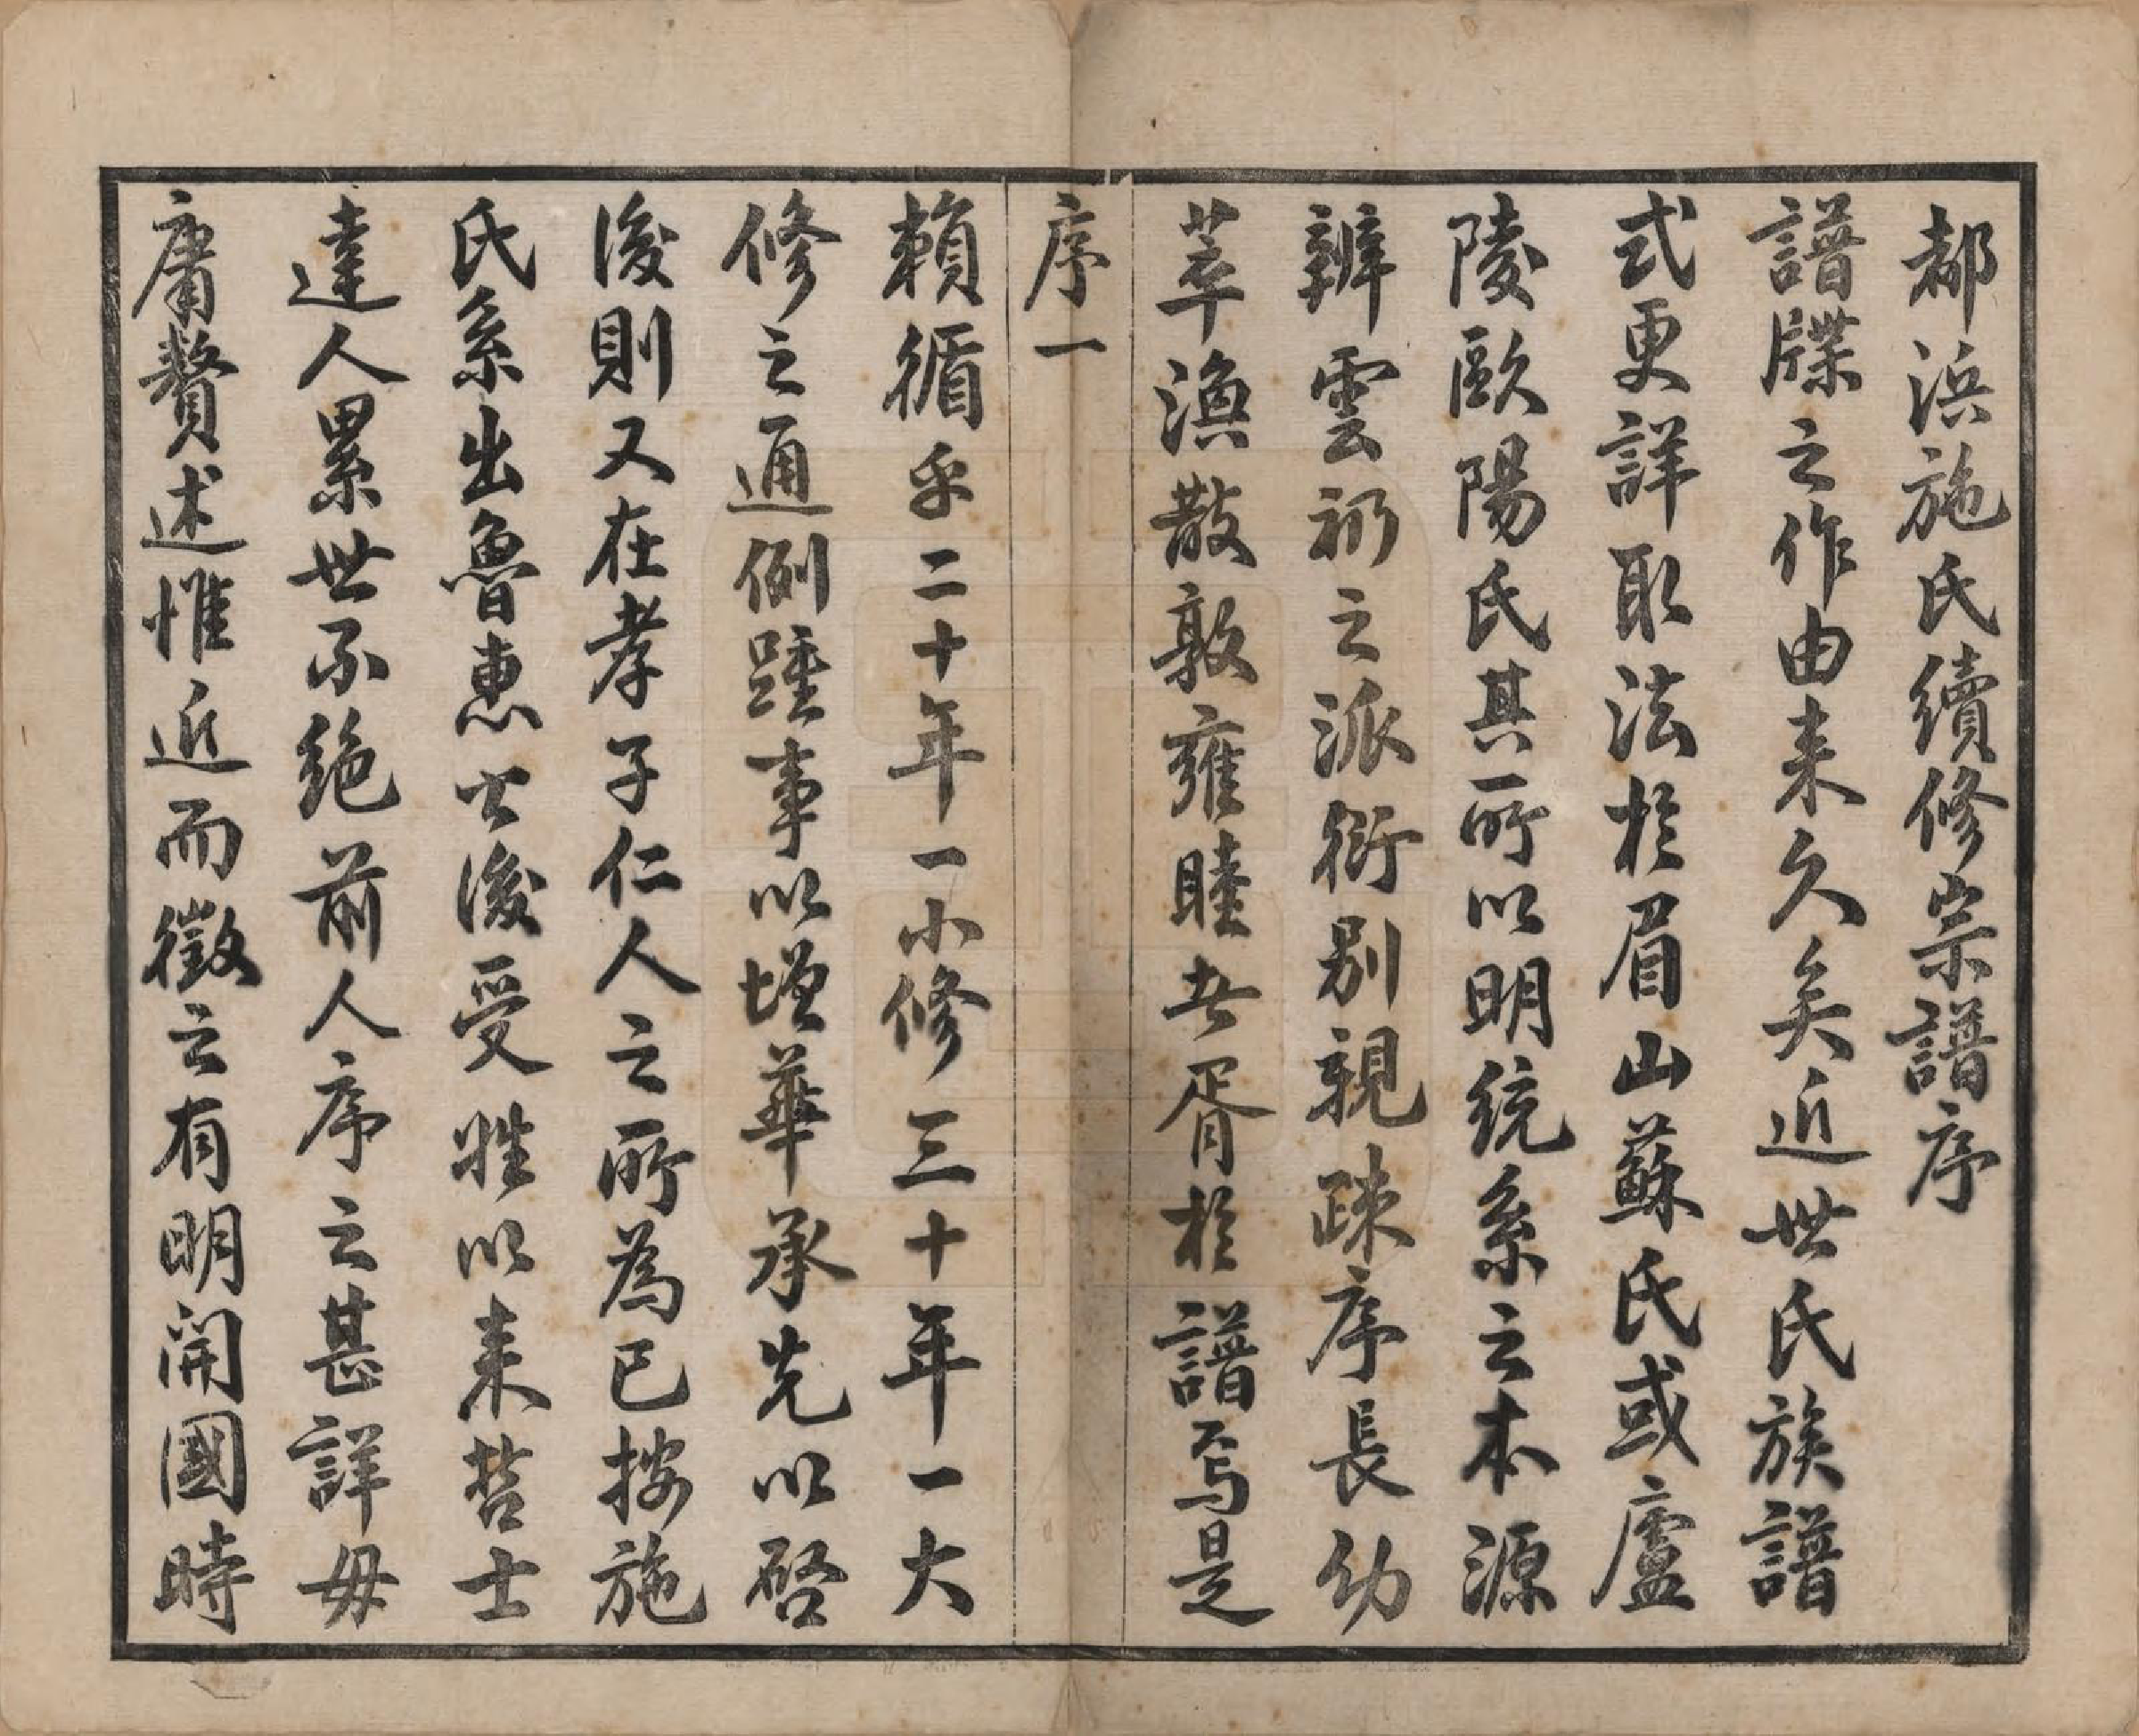 都浜施氏續修宗譜序
譜牒之作由來久矣近世氏族譜
式更詳取法於眉山蘇氏或廬
陵歐陽氏其所以明統系之本源
辨雲礽之派衍別親疎序長幼
萃渙散敦雍睦者胥於譜焉是
序一
賴循乎二十年一小修三十年一大
修之通例踵事以增華承先以啓
後則又在孝子仁人之所為已按施
氏系出魯惠公後受姓以來哲士
達人累世不絕前人序之甚詳毋
庸贅述惟近而徵之有明開國時